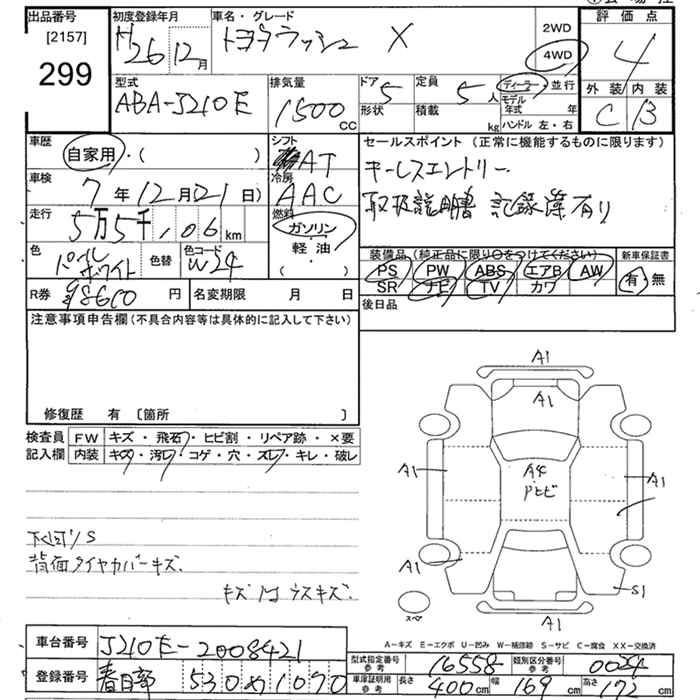 出品番号
[2157]
299
初度登録年月
H26 12月
車名・グレード
トヨタラッシュ X
2WD
4WD
評価点
4
外装 内装
C B
型式
ABA-J210E
排気量
1500
CC
ドア 5
形状
定員 5人
積載 kg
ディーラー・並行
モデル年式 年
ハンドル 左・右
車歴
自家用・( )
シフト
AT
セールスポイント (正常に機能するものに限ります)
キーレスエントリー
取扱説明書 記録簿有り
車検
7年12月21日)
冷房
AAC
走行
5万5千,106km
燃料
ガソリン
軽・油
( )
色
パールホワイト
色替
色コード
W24
装備品 (純正品に限り〇をつけてください)
PS PW ABS エアB AW
SR ナビ TV カワ
新車保証書
有 無
R券
¥8600円
名変期限 月 日
後日品
注意事項申告欄(不具合内容等は具体的に記入して下さい)
修復歴 有 [箇所 ]
検査員記入欄
FW キズ・飛石・ヒビ割・リペア跡・×要
内装 キズ・汚レ・コゲ・穴・スレ・キレ・破レ
下回リS
背面タイヤカバーキズ
キズ1ハ ウスキズ
A1
A1
A1
A4
Pヒビ
A1
A1
S1
スペア
A1
A-キズ E-エクボ U-凹み W-補修跡 S-サビ C-腐食 XX-交換済
車台番号
J210E-2008421
登録番号
春日部 530 1070
型式指定番号
参考
16558
類別区分番号
参考
0024
車庫証明用
参考
長さ 400cm
幅 169cm
高さ 172cm